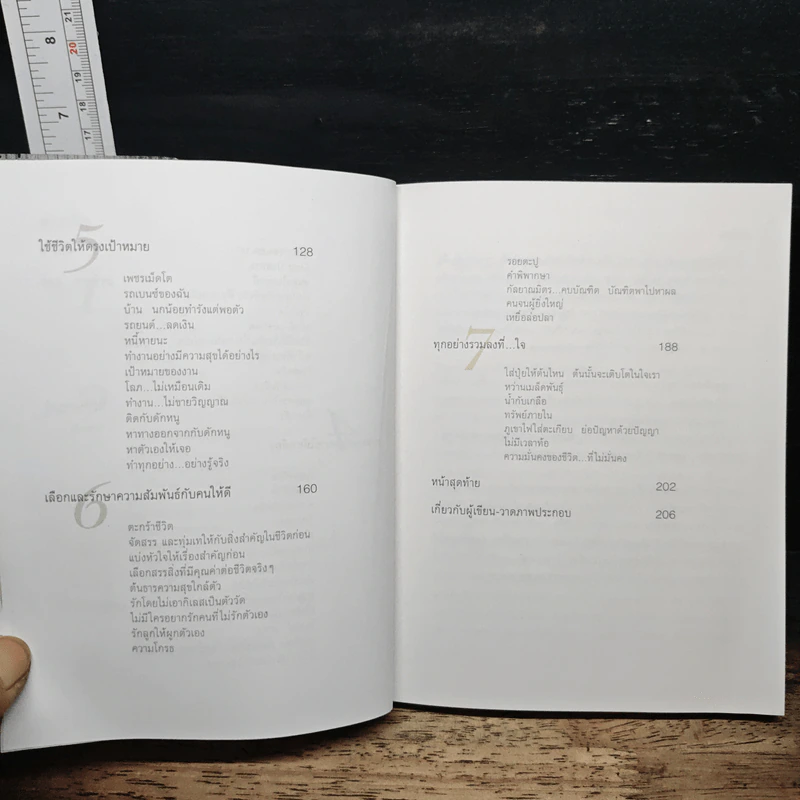 8
7
21
20
19
18
17
5
ใช้ชีวิตให้ตรงเป้าหมาย 128
เพชรเม็ดโต
รถเบนซ์ของฉัน
บ้าน นกน้อยทำรังแต่พอตัว
รถยนต์...ลดเงิน
หนี้หายนะ
ทำงานอย่างมีความสุขได้อย่างไร
เป้าหมายของงาน
โลภ...ไม่เหมือนเดิม
ทำงาน...ไม่ขายวิญญาณ
ติดกับดักหนู
หาทางออกจากกับดักหนู
หาตัวเองให้เจอ
ทำทุกอย่าง...อย่างรู้จริง
6
เลือกและรักษาความสัมพันธ์กับคนให้ดี 160
ตะกร้าชีวิต
จัดสรร และทุ่มเทให้กับสิ่งสำคัญในชีวิตก่อน
แบ่งหัวใจให้เรื่องสำคัญก่อน
เลือกสรรสิ่งที่มีคุณค่าต่อชีวิตจริงๆ
ต้นธารความสุขใกล้ตัว
รักโดยไม่เอากิเลสเป็นตัววัด
ไม่มีใครอยากรักคนที่ไม่รักตัวเอง
รักลูกให้ผูกตัวเอง
ความโกรธ
รอยตะปู
คำพิพากษา
กัลยาณมิตร...คบบัณฑิต บัณฑิตพาไปหาผล
คนจนผู้ยิ่งใหญ่
เหยื่อล่อปลา
7
ทุกอย่างรวมลงที่...ใจ 188
ใส่ปุ๋ยให้ต้นไหน ต้นนั้นจะเติบโตในใจเรา
หว่านเมล็ดพันธุ์
น้ำกับเกลือ
ทรัพย์ภายใน
ภูเขาไฟใส่ตะเกียบ ย่อยปัญหาด้วยปัญญา
ไม่มีเวลาท้อ
ความมั่นคงของชีวิต...ที่ไม่มั่นคง
หน้าสุดท้าย 202
เกี่ยวกับผู้เขียน-วาดภาพประกอบ 206